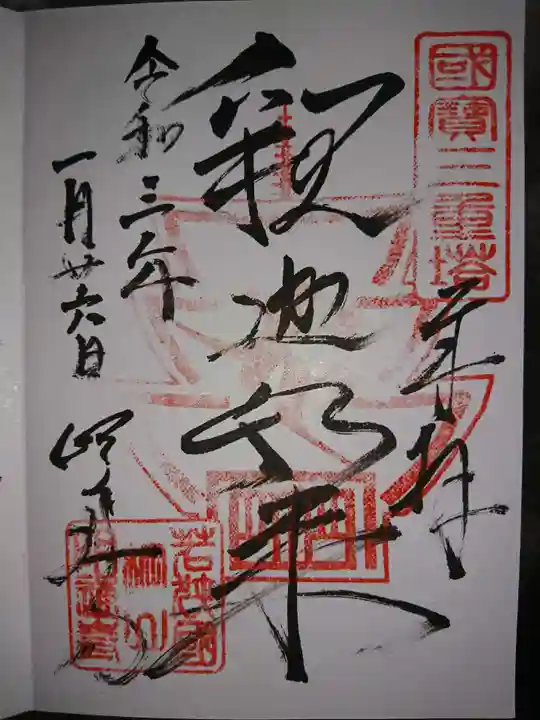 國寶三重塔
奉拝
釈迦如来
令和三年
一月廿六日
明通寺
若狭國